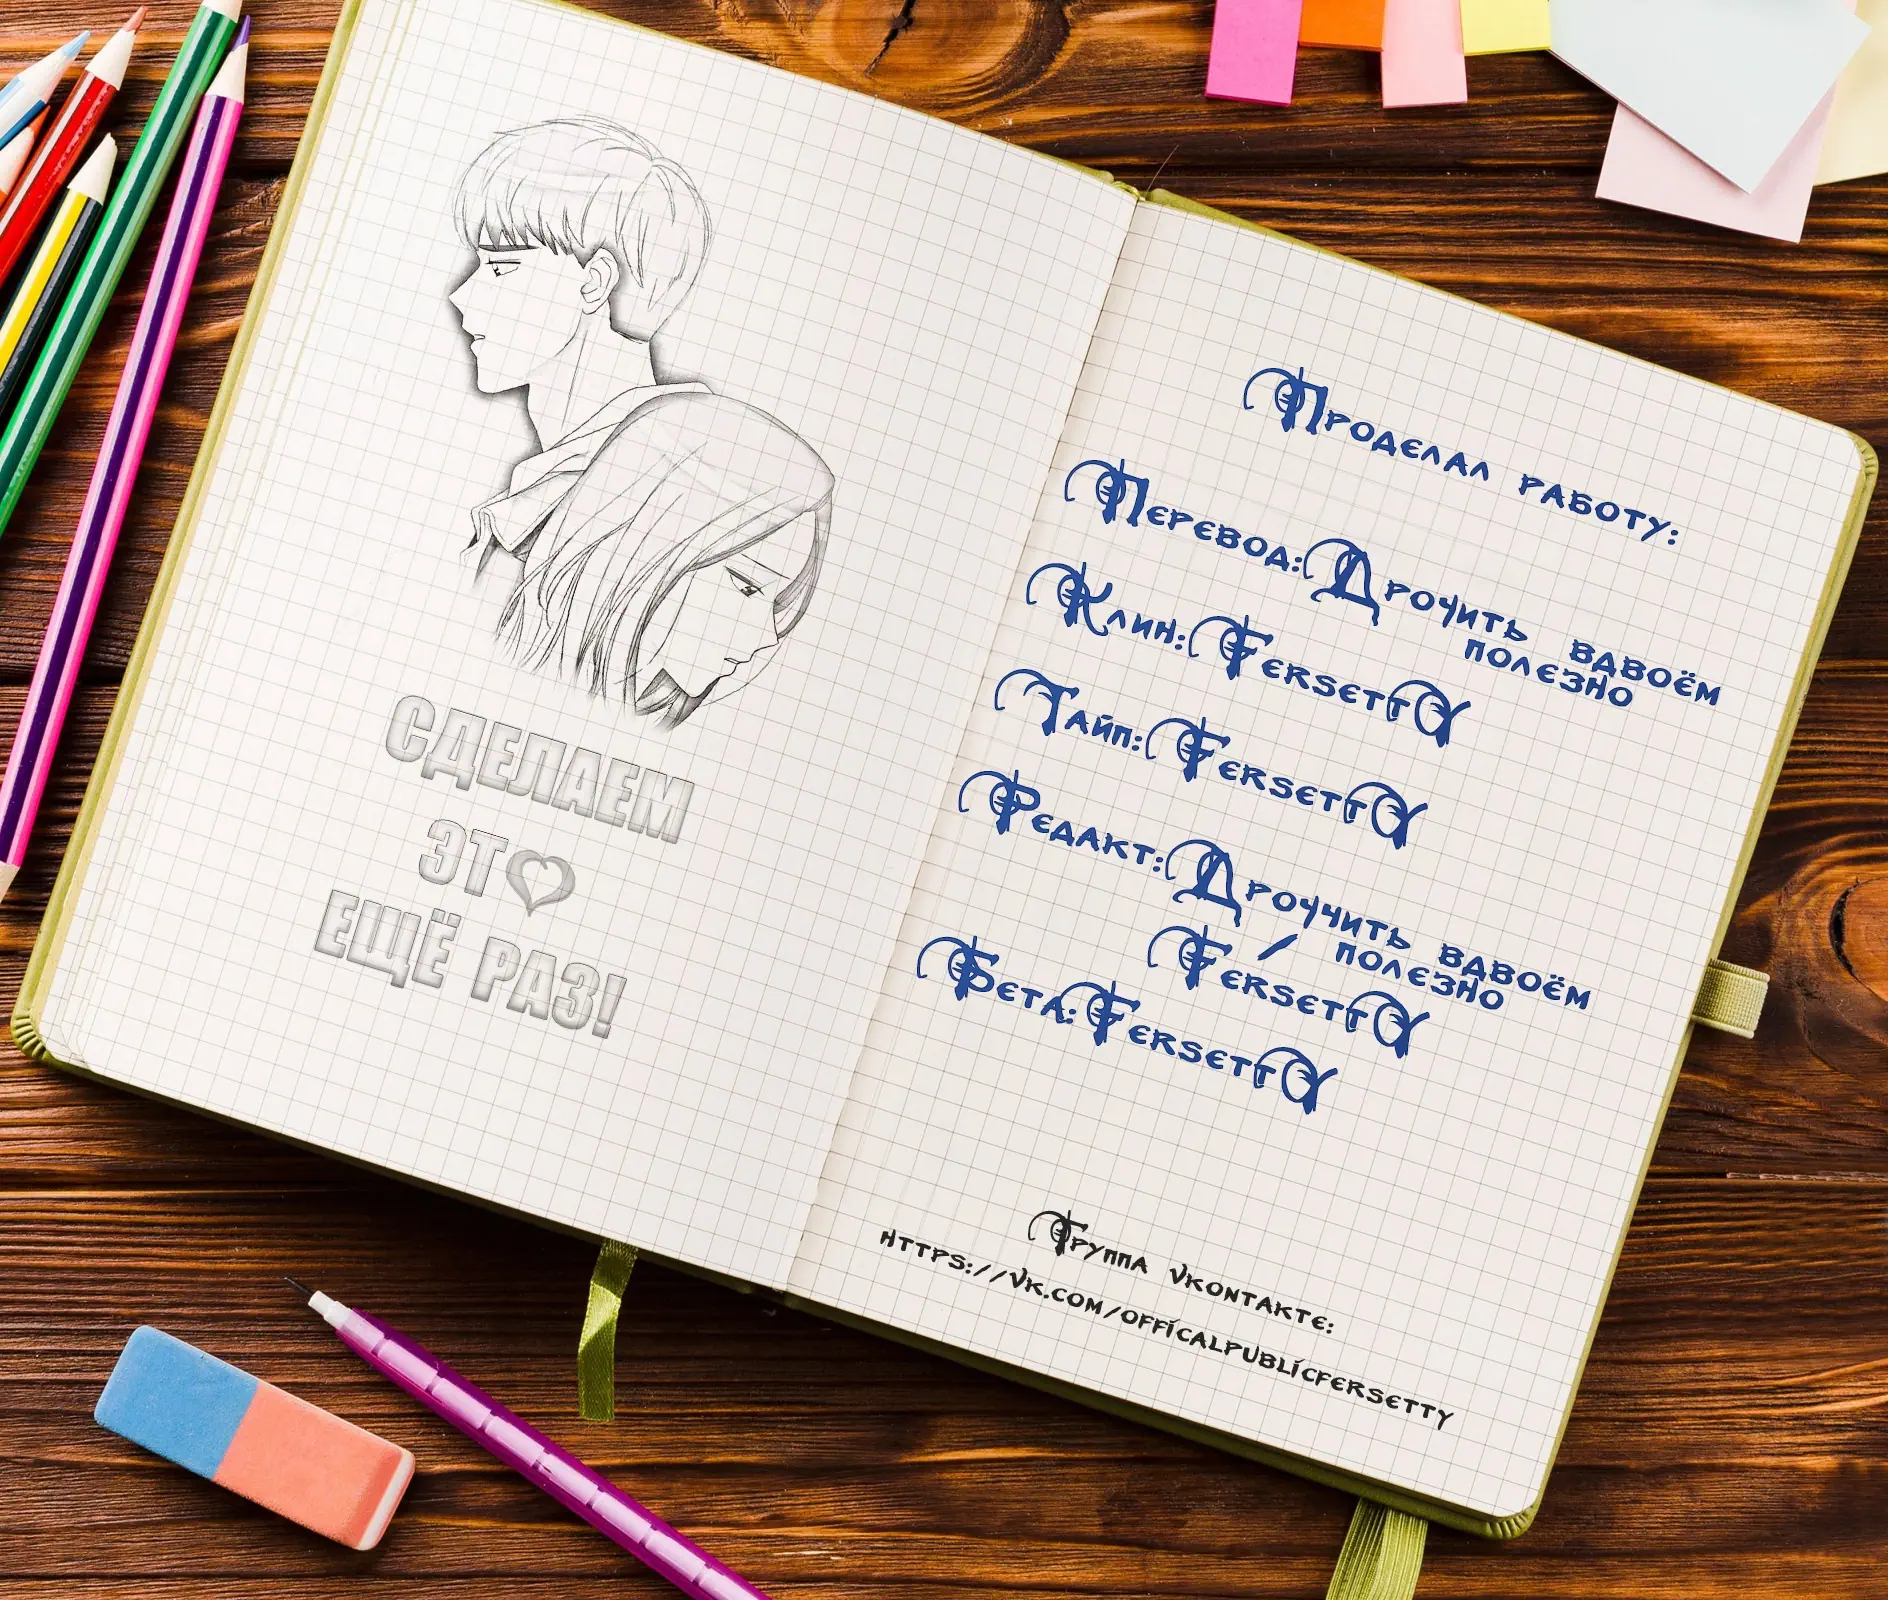 СДЕЛАЕМ
ЭТ
ЕЩЁ РАЗ!
Проделал работу:
Перевод: Дрочить вдвоём
полезно
Клин: FersettY
Тайп: FersettY
Редакт: Дроччить вдвоём
полезно
/
FersettY
Бета: FersettY
Группа vkontakte:
https://vk.com/officalpublicfersetty